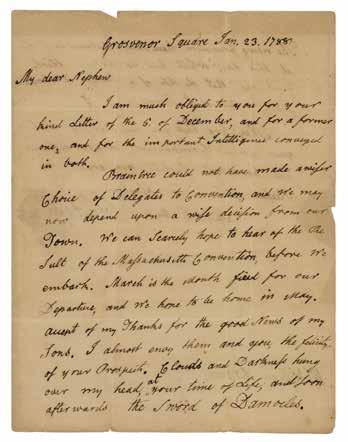 Grosvenor Square Jan. 23. 1788
My dear Nephew
I am much obliged to you for your
kind Letter of the 6 of December, and for a former
one, and for the important Intelligence conveyed
in both.
Braintree could not have made a wiser
Choice of Delegates to Convention, and We may
now depend upon a wise decision from our
Town. We can Scarcely hope to hear of the Re
Sult of the Massachusetts Convention, before We
embark. March is the Month fixed for our
Departure, and We hope to be home in May.
accept of my Thanks for the good News of my
Sons. I almost envy them and you, the felicity
of your Prospects. Clouds and Darkness hung
over my head, at your time of Life, and soon
afterwards the Sword of Damocles.